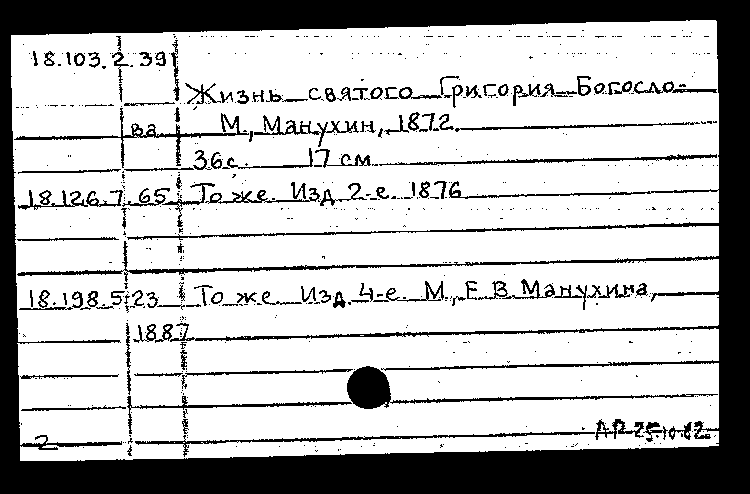 18.103.2.39
Жизнь святого Григория Богосло-
ва М., Манухин, 1872.
36с. 17 см
18.126.7.65 То же. Изд 2-е. 1876
18.198.5.23 То же. Изд. 4-е. М., Е.В. Манухина,
1887
2 АР 25.10.82.